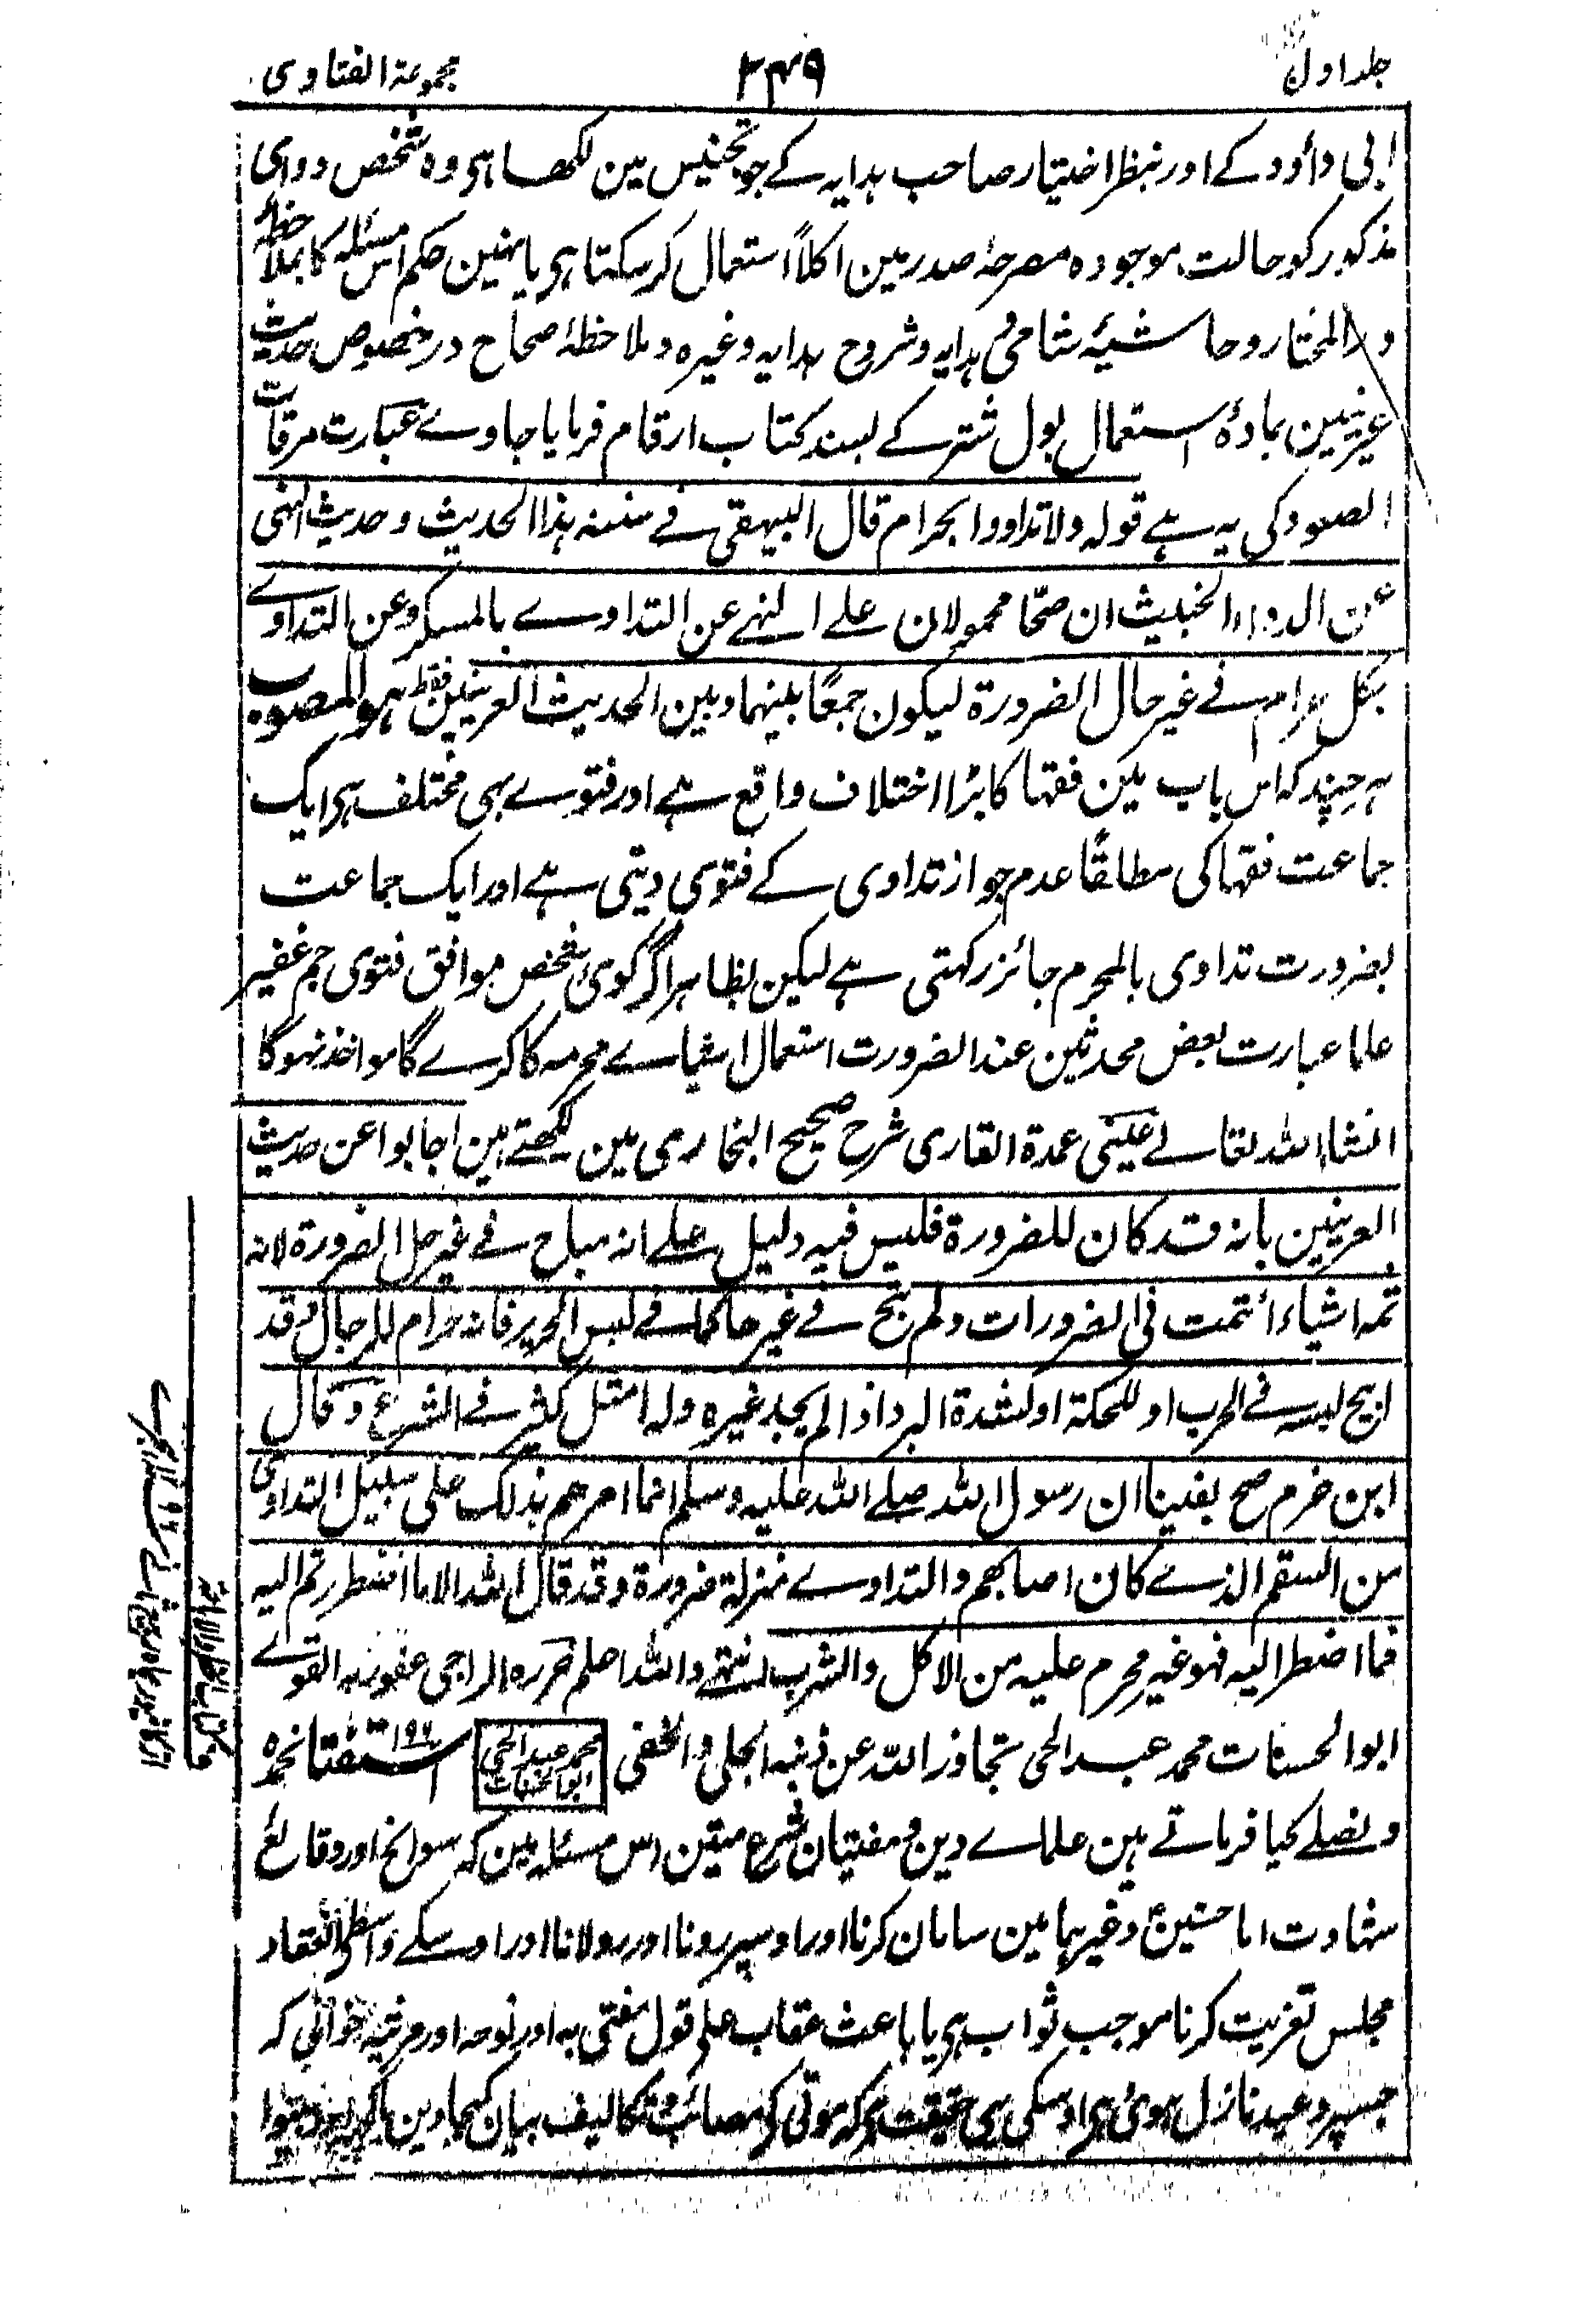 جلد اول ۳۴۹ مجموعۃ الفتاوی
ابی داؤد کے اور بنظر اختیار صاحب ہدایہ کے جو تجنیس مین لکھا ہی وہ شخص دوای
مذکور کو حالت موجودہ مصرحۂ صدر مین اکلاً استعمال کر سکتا ہی یا نہین حکم اس مسئلہ کا بملاحظہ
در المختار و حاشیۂ شامی و ہدایہ و شروح ہدایہ وغیرہ و ملاحظۂ صحاح در خصوص حدیث
عرینین بمادۂ استعمال بول شتر کے بسند کتاب ارقام فرمایا جاوے عبارت مرقات
الصعود کی یہ ہے قولہ ولا تداووا بحرام قال البیہقی فے سننہ ہذا الحدیث و حدیث النہی
عن الدواء الخبیث ان صحا محمولان علے النہے عن التداوے بالمسکر و عن التداوے
بکل حرام فے غیر حال الضرورۃ لیکون جمعًا بینہما و بین الحدیث العرینین فقط ہو المصوب
ہر چند کہ اس باب مین فقہا کا بڑا اختلاف واقع ہے اور فتوے بہی مختلف ہی ایک
جماعت فقہا کی مطلقًا عدم جواز تداوی کے فتوی دیتی ہے اور ایک جماعت
بضرورت تداوی بالمحرم جائز رکہتی ہے لیکن بظاہر اگر کوئی شخص موافق فتوی جم غفیر
علما عبارت بعض محدثین عند الضرورت استعمال اشیاے محرمہ کا کرے گا مواخذ نہوگا
انشاء اللہ تعالے عینی عمدۃ القاری شرح صحیح البخاری مین لکھتے ہین اجابوا عن حدیث
العرینین بانہ قد کان للضرورۃ فلیس فیہ دلیل علے انہ مباح فے غیر حال الضرورۃ لانہ
ثمہ اشیاء أتیحت فی الضرورات ولم تبح فے غیرہا کما فے لبس الحریر فانہ حرام للرجال وقد
ابیح لبسہ فے الحرب او للحکۃ او لشدۃ البرد اذا لم یجد غیرہ ولہ امثل کثیر فے الشرع وقال
ابن حزم صح یقینا ان رسول اللہ صلے اللہ علیہ وسلم انما امرہم بذلک علی سبیل التداوی
من السقم الذے کان اصابہم والتداوے بمنزلۃ ضرورۃ وقد قال اللہ الا ما اضطررتم الیہ
فما اضطر الیہ فہو غیر محرم علیہ من الاکل والشرب انتہے واللہ اعلم حررہ الراجی عفو ربہ القوے
ابو الحسنات محمد عبد الحی تجاوز اللہ عن ذنبہ الجلی والخفی محمد عبد الحی ابو الحسنات استفتا نحمدہ
ونصلے کیا فرماتے ہین علماے دین و مفتیان شرع متین اس مسئلہ مین کہ سوانح اور وقائع
شہادت امام حسنین وغیرہما مین سامان کرنا اور اوسپر رونا اور رولانا اور اوسکے واسطے انعقاد
مجلس تعزیت کرنا موجب ثواب ہی یا باعث عقاب علی قول مفتی بہ اور نوحہ اور مرثیہ خوانی کہ
جسپر وعید نازل ہوئی ہی اوسکی یہی حقیقت ہی کہ موتی کے مصائب و تکالیف بیان کیجاوین یا